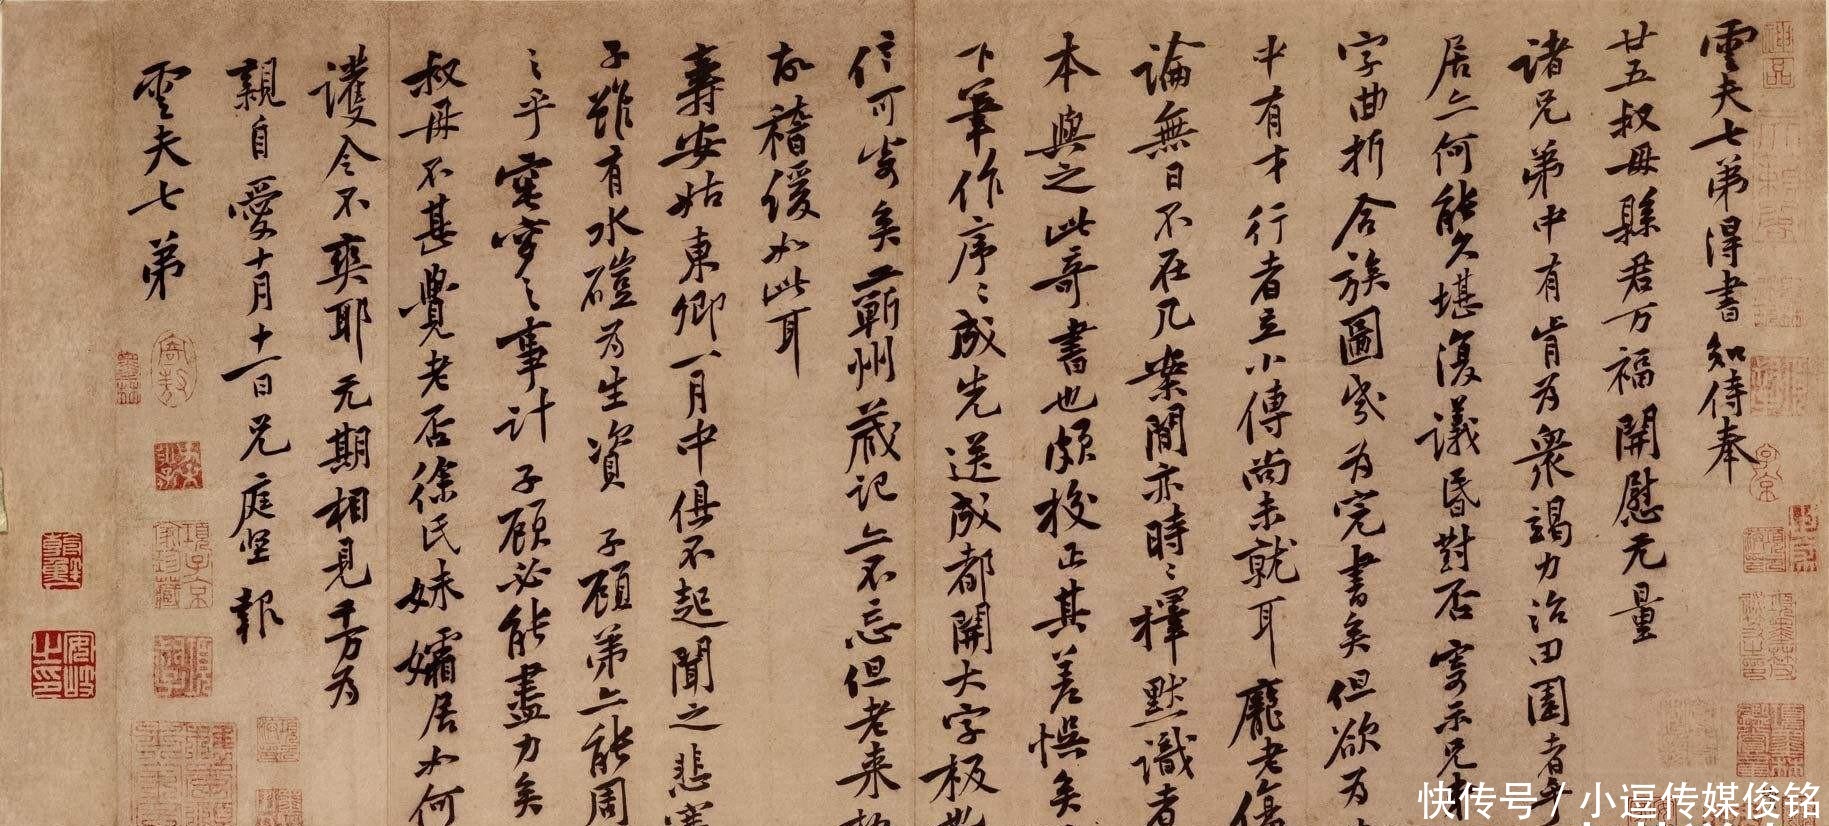 雲夫七弟得書知侍奉
廿五叔母縣君万福開慰无量
諸兄弟中有肯为衆竭力治田園者乎
居亦何能久堪復議昏對否寄示兄弟
字曲折合族圖峇为完書矣但欲为
中有才行者立小傳尚未就耳龐老傷
論無日不在几案間亦時〻擇默識者
本與之此奇書也頗校正其差悞矣
下筆作序〻成先送成都開大字板也
信可寄矣蘄州藏記亦不忘但老来
故稽緩如此耳
壽安姑東卿一月中俱不起聞之悲塞
子雖有水磑为生資子顧弟亦能周
之乎窀穸之事計子顧必能盡力矣
叔母不甚覺老否徐氏妹孀居如何
護令不爽耶元期相見千万为
親自愛十月十一日兄庭堅報
雲夫七弟
快传号 / 小逗传媒俊铭